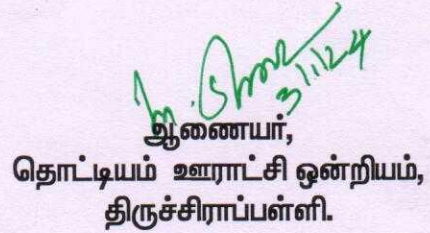 3/1/24
ஆணையர்,
தொட்டியம் ஊராட்சி ஒன்றியம்,
திருச்சிராப்பள்ளி.